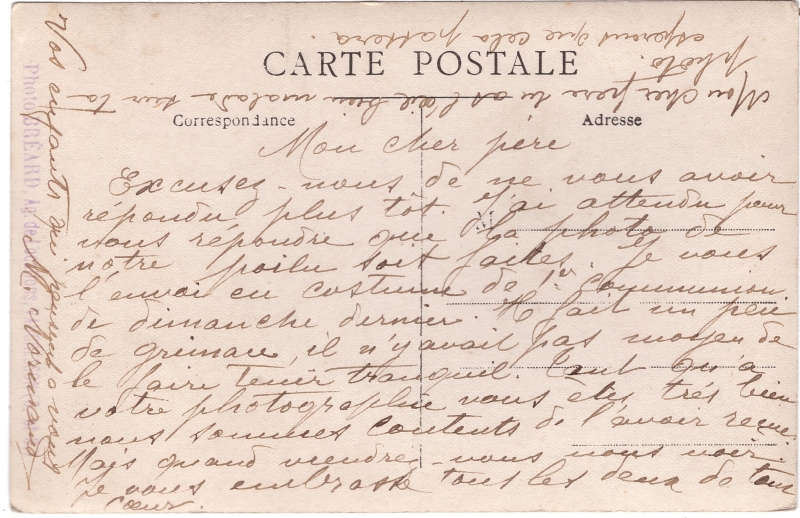 CARTE POSTALE
Correspondance
Adresse
Mon cher père
Excusez-nous de ne vous avoir
répondu plus tôt. J'ai attendu pour
vous répondre que la photo de
notre poilu soit faites. Je vous
l'envoi en costume de 1re communion
de dimanche dernier. Il fait un peu
de grimace, il n'y avait pas moyen de
le faire tenir tranquil. Tant qu'a
votre photographie vous êtes très bien
nous sommes contents de l'avoir reçue
Mais quand viendrez-vous nous voir.
Je vous embrasse tous les deux de tout
cœur.
Vos enfants qui pensent a vous
M. Normand
Mon cher père tu as l'air bien malade sur ta
photo.
esperons que cela passera.
Photo BRÉARD,